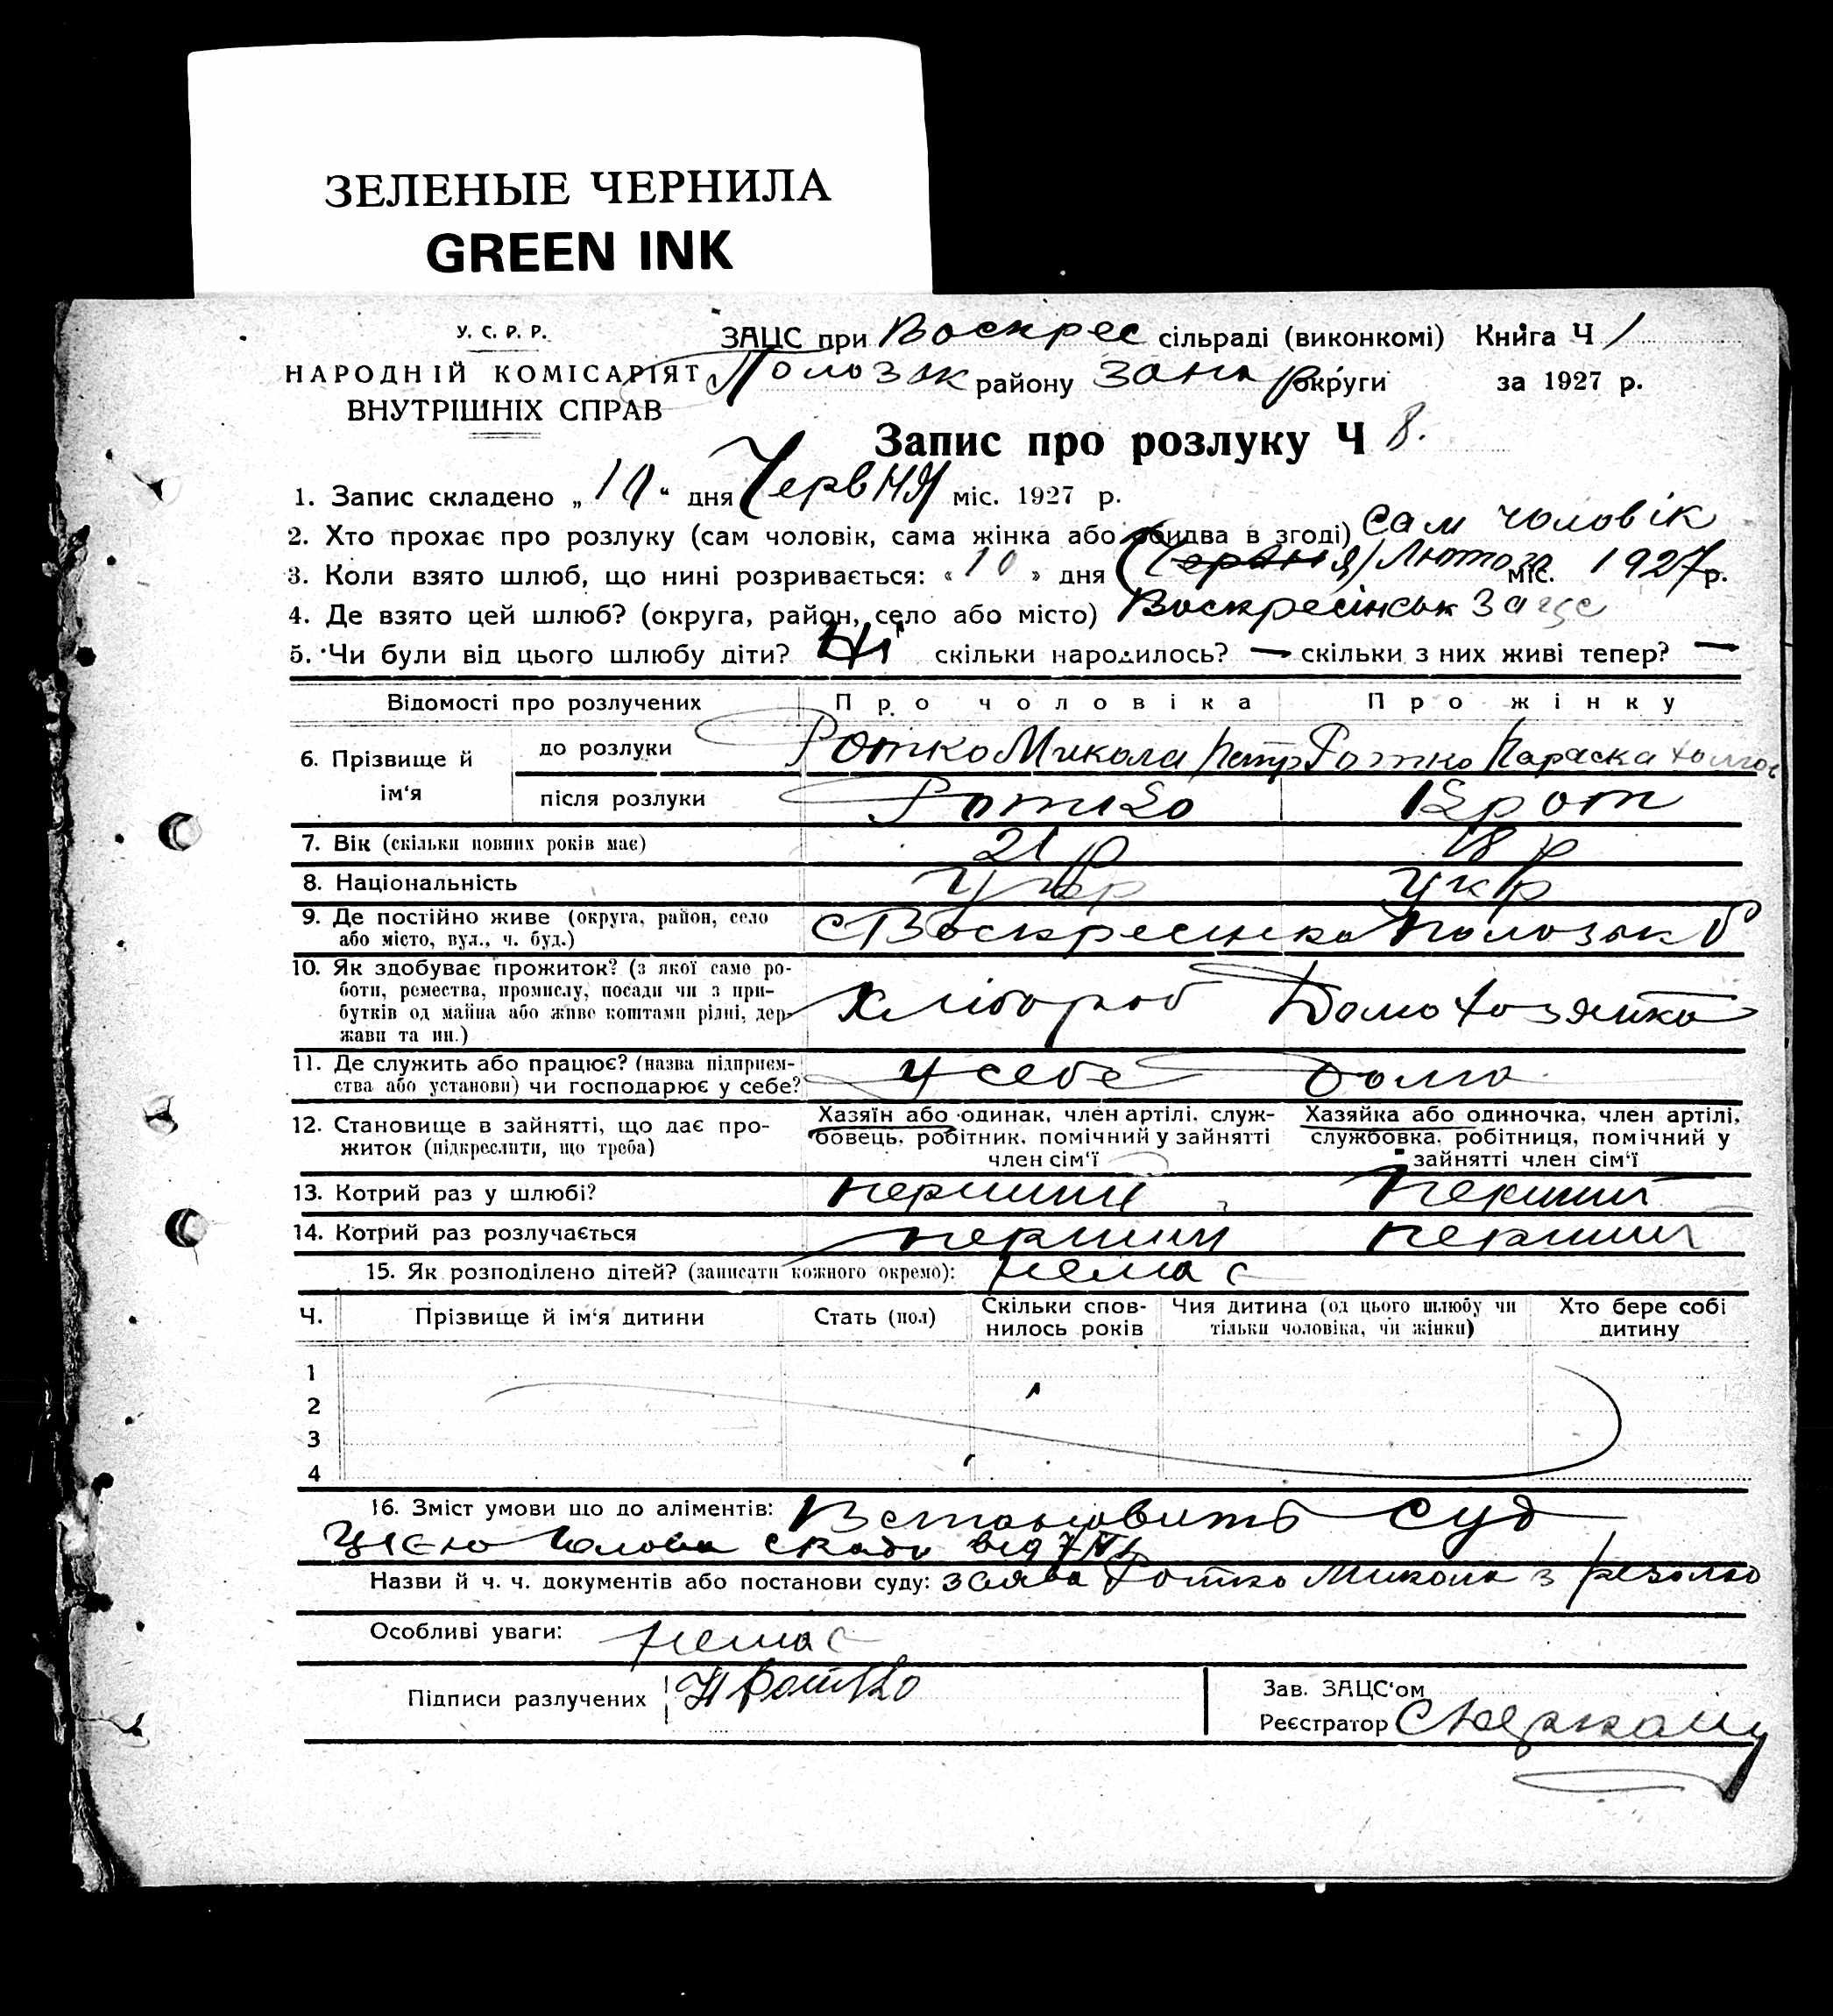 ЗЕЛЕНЫЕ ЧЕРНИЛА
GREEN INK
У. С. Р. Р.
НАРОДНІЙ КОМІСАРІЯТ
ВНУТРІШНІХ СПРАВ
ЗАЦС при Воскрес сільраді (виконкомі) Книга Ч 1
Полозак району Запар округи за 1927 р.
Запис про розлуку Ч 8.
1. Запис складено „10“ дня Червня міс. 1927 р.
2. Хто прохає про розлуку (сам чоловік, сама жінка або обидва в згоді) Сам чоловік
3. Коли взято шлюб, що нині розривається: «10» дня Червня Лютого міс. 1927 р.
4. Де взято цей шлюб? (округа, район, село або місто) Воскресінськ Зацс
5. Чи були від цього шлюбу діти? Ні скільки народилось? — скільки з них живі тепер? —
Відомості про розлучених Про чоловіка Про жінку
6. Прізвище й ім‘я
до розлуки Ротко Микола Петр Ротко Параска
після розлуки Ротко Крот
7. Вік (скільки повних років має) 21 р 18 р
8. Національність Укр Укр
9. Де постійно живе (округа, район, село
або місто, вул., ч. буд.) с Воскресенка Полозак
10. Як здобуває прожиток? (з якої саме ро-
боти, ремества, промислу, посади чи з при-
бутків од майна або живе коштами рідні, дер-
жави та ин.) Хлібороб Домохозяйка
11. Де служить або працює? (назва підприєм-
ства або установи) чи господарює у себе? У себе дома
12. Становище в зайнятті, що дає про-
житок (підкреслити, що треба)
Хазяїн або одинак, член артілі, служ-
бовець, робітник, помічний у зайнятті
член сім‘ї
Хазяйка або одиночка, член артілі,
службовка, робітниця, помічний у
зайнятті член сім‘ї
13. Котрий раз у шлюбі? перший перший
14. Котрий раз розлучається перший перший
15. Як розподілено дітей? (записати кожного окремо): немає
Ч. Прізвище й ім‘я дитини Стать (пол) Скільки спов-
нилось років Чия дитина (од цього шлюбу чи
тільки чоловіка, чи жінки) Хто бере собі
дитину
1
2
3
4
16. Зміст умови що до аліментів: Встановить суд
цією Голова с ради від 7/VI
Назви й ч. ч. документів або постанови суду: заява Ротко Микола з резолю
Особливі уваги: немає
Підписи разлучених Ротко
Зав. ЗАЦС‘ом
Реєстратор